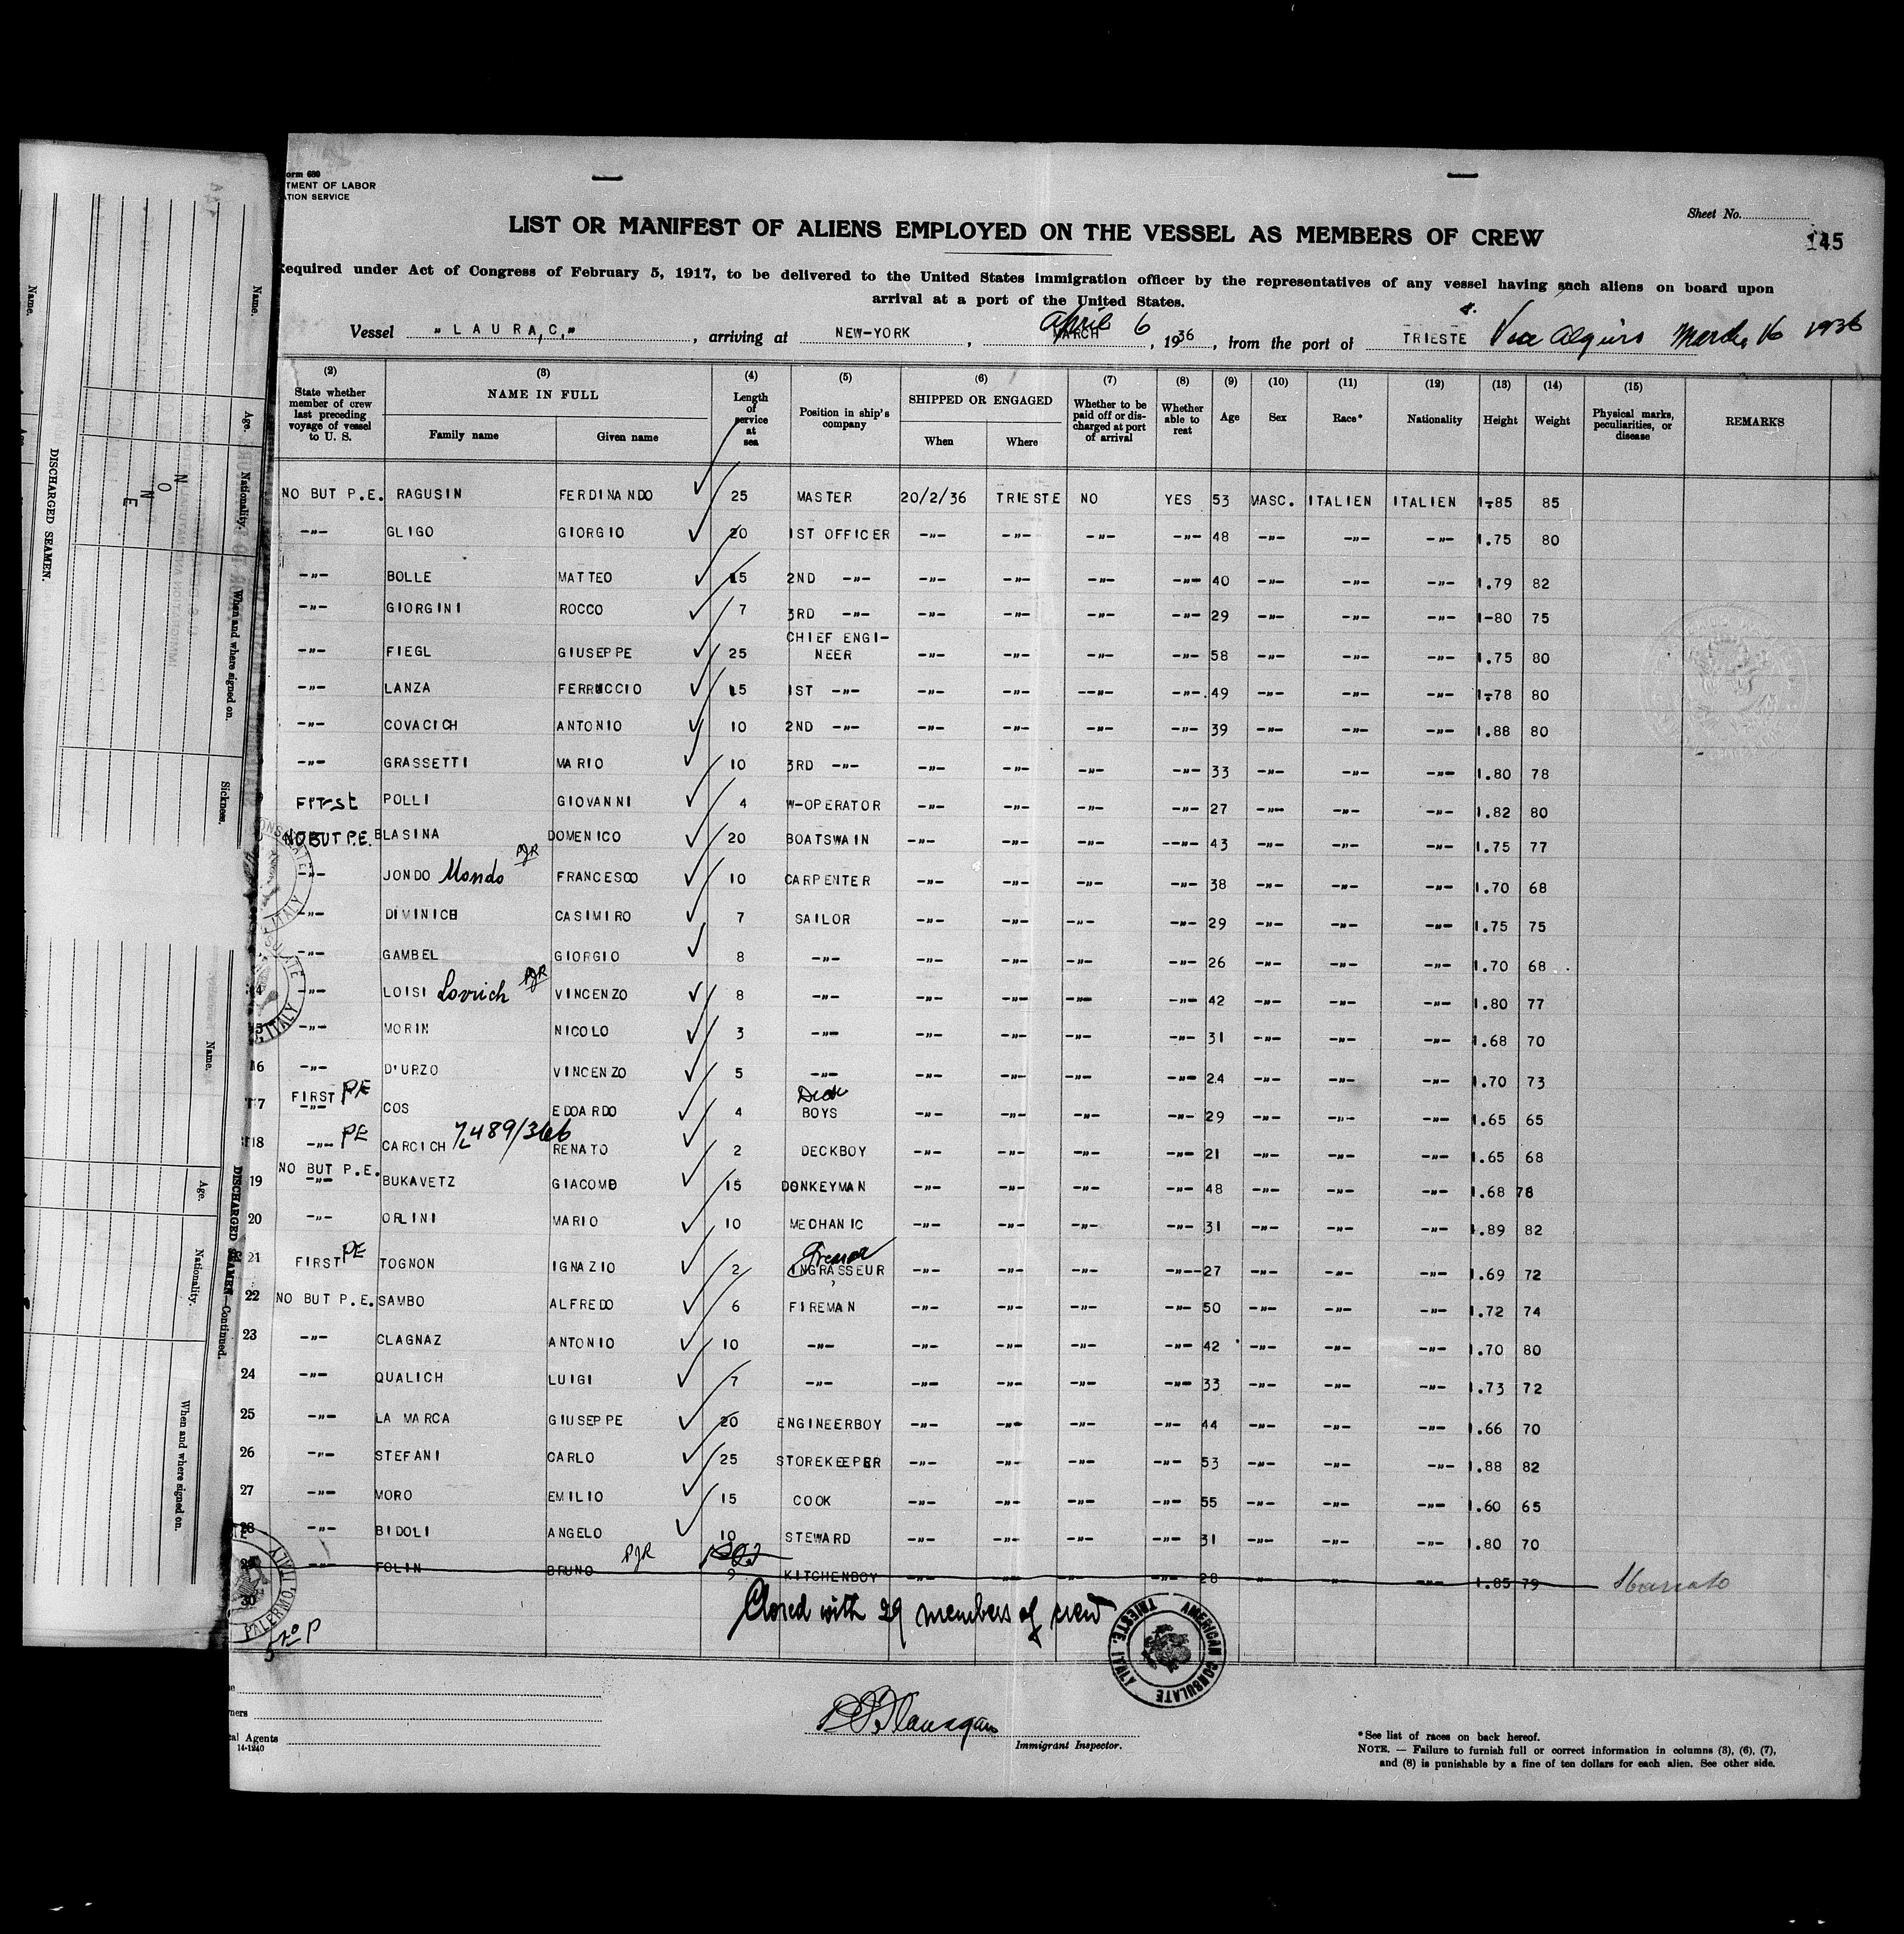 Form 689
TMENT OF LABOR
ATION SERVICE
Sheet No.
LIST OR MANIFEST OF ALIENS EMPLOYED ON THE VESSEL AS MEMBERS OF CREW
145
Required under Act of Congress of February 5, 1917, to be delivered to the United States immigration officer by the representatives of any vessel having such aliens on board upon
arrival at a port of the United States.
Vessel "LAURA,C," , arriving at NEW-YORK , MARCH April 6 , 1936 , from the port of TRIESTE Via Algiers March 16 1936
(2) (3) (4) (5) (6) (7) (8) (9) (10) (11) (12) (13) (14) (15)
State whether member of crew last preceding voyage of vessel to U. S. NAME IN FULL Family name Given name Length of service at sea Position in ship's company SHIPPED OR ENGAGED When Where Whether to be paid off or discharged at port of arrival Whether able to reat Age Sex Race* Nationality Height Weight Physical marks, peculiarities, or disease REMARKS
NO BUT P.E. RAGUSIN FERDINANDO 25 MASTER 20/2/36 TRIESTE NO YES 53 MASC. ITALIEN ITALIEN 1-85 85
-"- GLIGO GIORGIO 20 1ST OFFICER -"- -"- -"- -"- 48 -"- -"- -"- 1.75 80
-"- BOLLE MATTEO 15 2ND -"- -"- -"- -"- -"- 40 -"- -"- -"- 1.79 82
-"- GIORGINI ROCCO 7 3RD -"- -"- -"- -"- -"- 29 -"- -"- -"- 1-80 75
-"- FIEGL GIUSEPPE 25 CHIEF ENGINEER -"- -"- -"- -"- 58 -"- -"- -"- 1.75 80
-"- LANZA FERRUCCIO 15 1ST -"- -"- -"- -"- -"- 49 -"- -"- -"- 1-78 80
-"- COVACICH ANTONIO 10 2ND -"- -"- -"- -"- -"- 39 -"- -"- -"- 1.88 80
-"- GRASSETTI MARIO 10 3RD -"- -"- -"- -"- -"- 33 -"- -"- -"- 1.80 78
First POLLI GIOVANNI 4 W-OPERATOR -"- -"- -"- -"- 27 -"- -"- -"- 1.82 80
NO BUT P.E. BLASINA DOMENICO 20 BOATSWAIN -"- -"- -"- -"- 43 -"- -"- -"- 1.75 77
-"- JONDO Mondo PJR FRANCESCO 10 CARPENTER -"- -"- -"- -"- 38 -"- -"- -"- 1.70 68
-"- DIMINICH CASIMIRO 7 SAILOR -"- -"- -"- -"- 29 -"- -"- -"- 1.75 75
-"- GAMBEL GIORGIO 8 -"- -"- -"- -"- -"- 26 -"- -"- -"- 1.70 68
14 -"- LOISI Lovrich PJR VINCENZO 8 -"- -"- -"- -"- -"- 42 -"- -"- -"- 1.80 77
15 -"- MORIN NICOLO 3 -"- -"- -"- -"- -"- 31 -"- -"- -"- 1.68 70
16 -"- D'URZO VINCENZO 5 -"- -"- -"- -"- -"- 24 -"- -"- -"- 1.70 73
17 FIRST PE -"- COS EDOARDO 4 Deck BOYS -"- -"- -"- -"- 29 -"- -"- -"- 1.65 65
18 -"- PE CARCICH 7489/366 RENATO 2 DECKBOY -"- -"- -"- -"- 21 -"- -"- -"- 1.65 68
19 NO BUT P.E. -"- BUKAVETZ GIACOMO 15 DONKEYMAN -"- -"- -"- -"- 48 -"- -"- -"- 1.68 78
20 -"- ORLINI MARIO 10 MECHANIC -"- -"- -"- -"- 31 -"- -"- -"- 1.89 82
21 FIRST PE TOGNON IGNAZIO 2 Greaser INGRASSEUR -"- -"- -"- -"- 27 -"- -"- -"- 1.69 72
22 NO BUT P.E. SAMBO ALFREDO 6 FIREMAN -"- -"- -"- -"- 50 -"- -"- -"- 1.72 74
23 -"- CLAGNAZ ANTONIO 10 -"- -"- -"- -"- -"- 42 -"- -"- -"- 1.70 80
24 -"- QUALICH LUIGI 7 -"- -"- -"- -"- -"- 33 -"- -"- -"- 1.73 72
25 -"- LA MARCA GIUSEPPE 20 ENGINEERBOY -"- -"- -"- -"- 44 -"- -"- -"- 1.66 70
26 -"- STEFANI CARLO 25 STOREKEEPER -"- -"- -"- -"- 53 -"- -"- -"- 1.88 82
27 -"- MORO EMILIO 15 COOK -"- -"- -"- -"- 55 -"- -"- -"- 1.60 65
28 -"- BIDOLI ANGELO 10 STEWARD -"- -"- -"- -"- 31 -"- -"- -"- 1.80 70
29 -"- FOLIN BRUNO PJR 9 KITCHENBOY -"- -"- -"- -"- 28 -"- -"- -"- 1.85 79
30
Closed with 29 members of crew
AMERICAN CONSULATE TRIESTE, ITALY
PALERMO, ITALY
P J Flanagan
Immigrant Inspector.
ners
cal Agents
14-1240
*See list of races on back hereof.
NOTE. — Failure to furnish full or correct information in columns (3), (6), (7),
and (8) is punishable by a fine of ten dollars for each alien. See other side.
DISCHARGED SEAMEN.
Name. Age. Nationality. When and where signed on. Sickness.
NONE
DISCHARGED SEAMEN—Continued.
Name. Age. Nationality. When and where signed on.